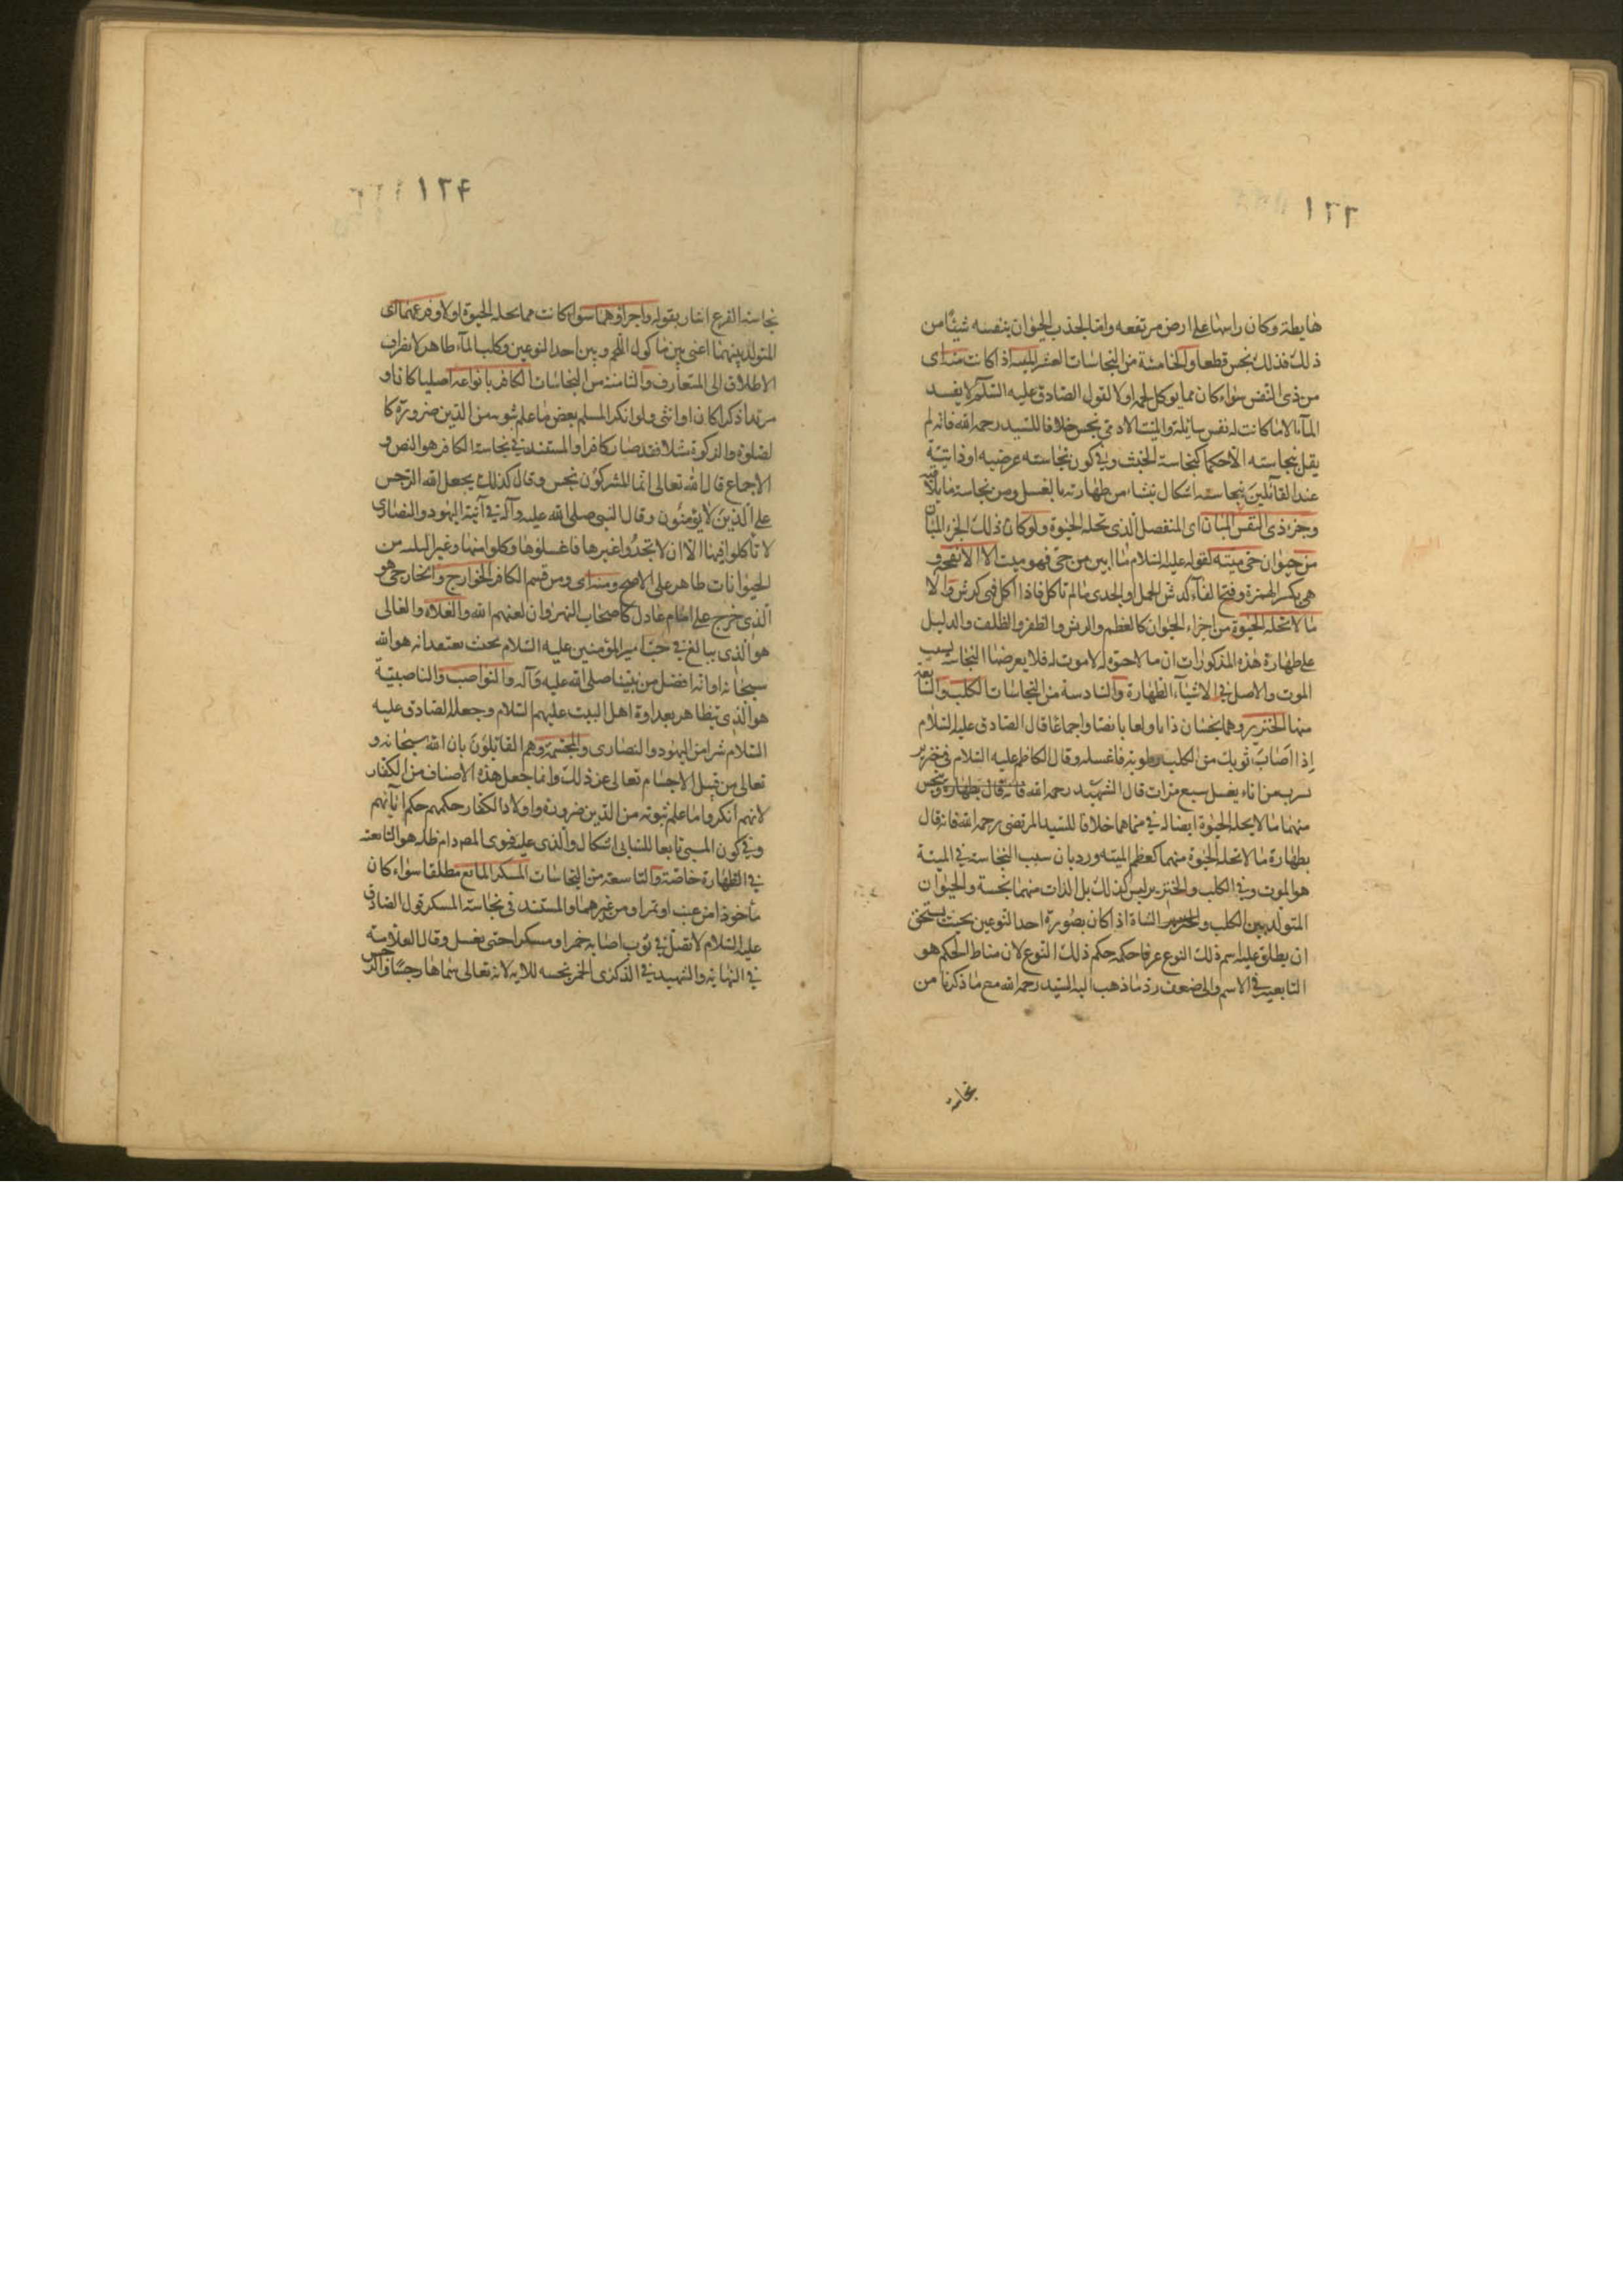 ١٢٣
هابطة وكان راسها على ارض مرتفعه واما لجذب الحيوان بنفسه شيئا من
ذلك فذلك نجس قطعا والخامسة من النجاسات العشر الميتة اذا كانت منه اى
من ذى النفس سواء كان مما يوكل لحمه او لا لقول الصادق عليه السلم لا يفسد
الماء الا ما كانت له نفس سائلة والميت الادمى نجس خلافا للسيد رحمه الله فانه لم
يقل بنجاسته الا حكما كنجاسة الخبث وفى كون نجاسته عرضيه او ذاتية
عند القائلين بنجاسته اشكال ينشاء من طهارته بالغسل ومن نجاسة ما يلاقيه
وجزء ذى النفس المبان اى المنفصل الذى تحله الحيوة ولو كان ذلك الجزء المبان
من حيوان حى ميتة لقوله عليه السلام ما ابين من حى فهو ميت الا الانفحة و
هى بكسر الهمزة وفتح الفاء كرش الحمل او الجدى ما لم تاكل فاذا اكل فهى كرش والا
ما لا تحله الحيوة من اجزاء الحيوان كالعظم والريش والظفر والظلف والدليل
على طهارة هذه المذكورات ان ما لا حيوة له لا موت له فلا يعرضها النجاسة بسبب
الموت والاصل فى الاشياء الطهارة والسادسة من النجاسات الكلب والسابعة
منها الخنزير وهما نجسان ذاتا ولعابا نصا واجماعا قال الصادق عليه السلام
اذا اصاب ثوبك من الكلب رطوبة فاغسله وقال الكاظم عليه السلام فى خنزير
شرب من اناء يغسل سبع مرات قال الشهيد رحمه الله فانه قال بطهارة وينجس
منهما ما لا يحله الحيوة ايضا له فى منهما خلافا للسيد المرتضى رحمه الله فانه قال
بطهارة ما لا تحله الحيوة منهما كعظم الميته ورد بان سبب النجاسة فى الميتة
هو الموت وفى الكلب والخنزير ليس كذلك بل الذات منهما نجسة والحيوان
المتولد بين الكلب والخنزير الشاة اذا كان بصورة احد النوعين بحيث يستحق
ان يطلق عليه اسم ذلك النوع عرفا حكمه حكم ذلك النوع لان مناط الحكم هو
التابعية فى الاسم والى ضعف رد ما ذهب اليه السيد رحمه الله مع ما ذكرنا من
نجاسة
١٢۴
نجاسة الفرع اشار بقوله واجزاؤهما سواء كانت مما يحله الحيوة او لا وفرعهما اى
المتولد بينهما اعنى بين ماكول اللحم وبين احد النوعين وكلب الماء طاهر لانصراف
الاطلاق الى المتعارف والثامنة من النجاسات الكافر بانواعه اصليا كان او
مرتدا ذكرا كان او انثى ولو انكر المسلم بعض ما علم ثبوته من الدين ضرورة كا
لصلوة والزكوة مثلا فقد صار كافرا والمستند فى نجاسة الكافر هو النص و
الاجماع قال الله تعالى انما المشركون نجس وقال كذلك يجعل الله الرجس
على الذين لا يؤمنون وقال النبى صلى الله عليه وآله فى آنية اليهود والنصارى
لا تأكلوا فيها الا ان لا تجدوا غيرها فاغسلوها وكلوا منها وغير البلده من
الحيوانات طاهر على الاصح ومنه اى ومن قسم الكافر الخوارج والخارجى هو
الذى خرج على امام عادل كاصحاب النهروان لعنهم الله والغلاة والغالى
هو الذى يبالغ فى حب امير المؤمنين عليه السلام بحيث يعتقد انه هو الله
سبحانه او انه افضل من نبينا صلى الله عليه وآله والنواصب والناصبية
هو الذى يتظاهر بعداوة اهل البيت عليهم السلام وجعله الصادق عليه
السلام شرا من اليهود والنصارى والمجسمة وهم القائلون بان الله سبحانه و
تعالى من قبيل الاجسام تعالى عن ذلك وانما جعل هذه الاصناف من الكفار
لانهم انكروا ما علم ثبوته من الدين ضرورة واولاد الكفار حكمهم حكم آبائهم
وفى كون المسبى تابعا للسابى اشكال والذى عليه فتوى المصـ دام ظله هو التابعة
فى الطهارة خاصة والتاسعة من النجاسات المسكر المائع مطلقا سواء كان
مأخوذا من عنب او تمر او من غيرهما والمستند فى نجاسة المسكر قول الصادق
عليه السلام لا تصل فى ثوب اصابه خمر او مسكر حتى يغسل وقال العلامة
فى النهاية والشهيد فى الذكرى الخمر نجسه للاية لانه تعالى سماها رجسا والرجس